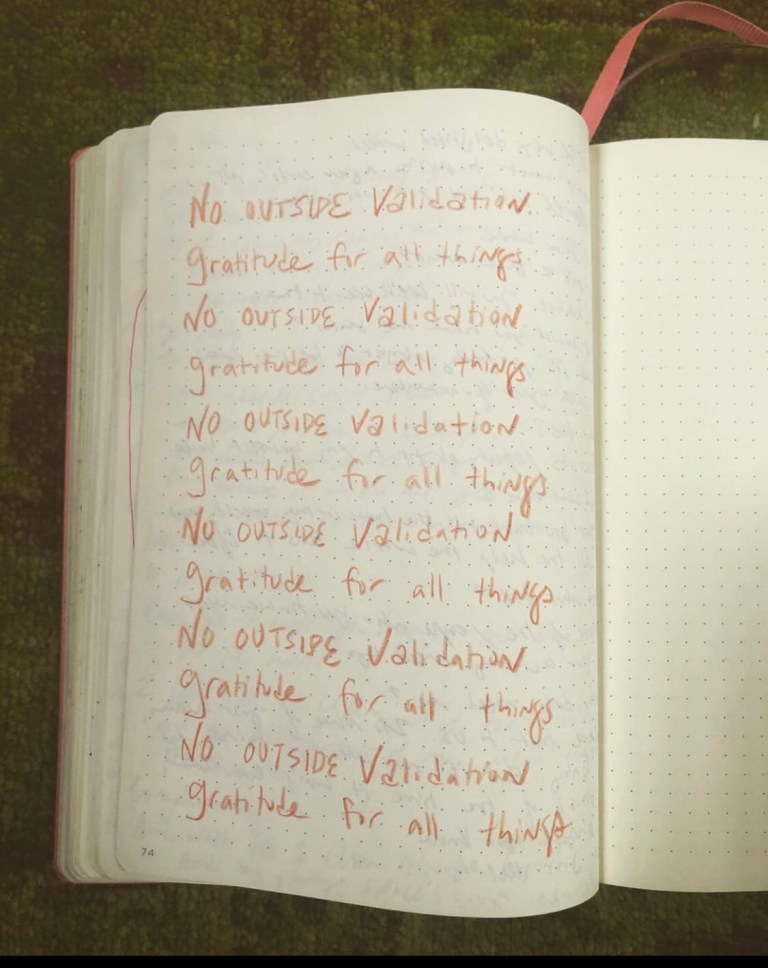 No OUTSIDE Validation.
gratitude for all things
No OUTSIDE Validation
gratitude for all things
No OUTSIDE Validation
gratitude for all things
No OUTSIDE Validation
gratitude for all things
No OUTSIDE Validation.
gratitude for all things
No OUTSIDE Validation
gratitude for all things
74